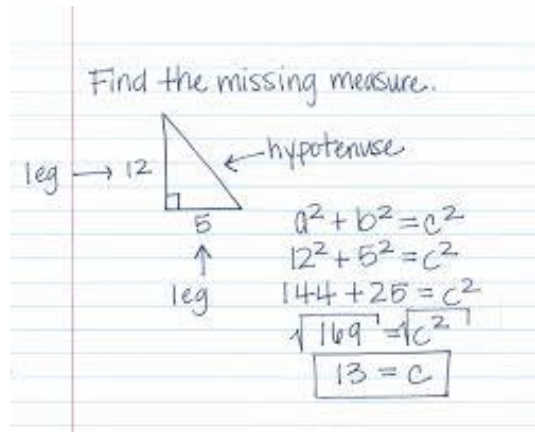 Find the missing measure.
hypotenuse
leg → 12
5
leg
a² + b² = c²
12² + 5² = c²
144 + 25 = c²
√169 = √c²
13 = c